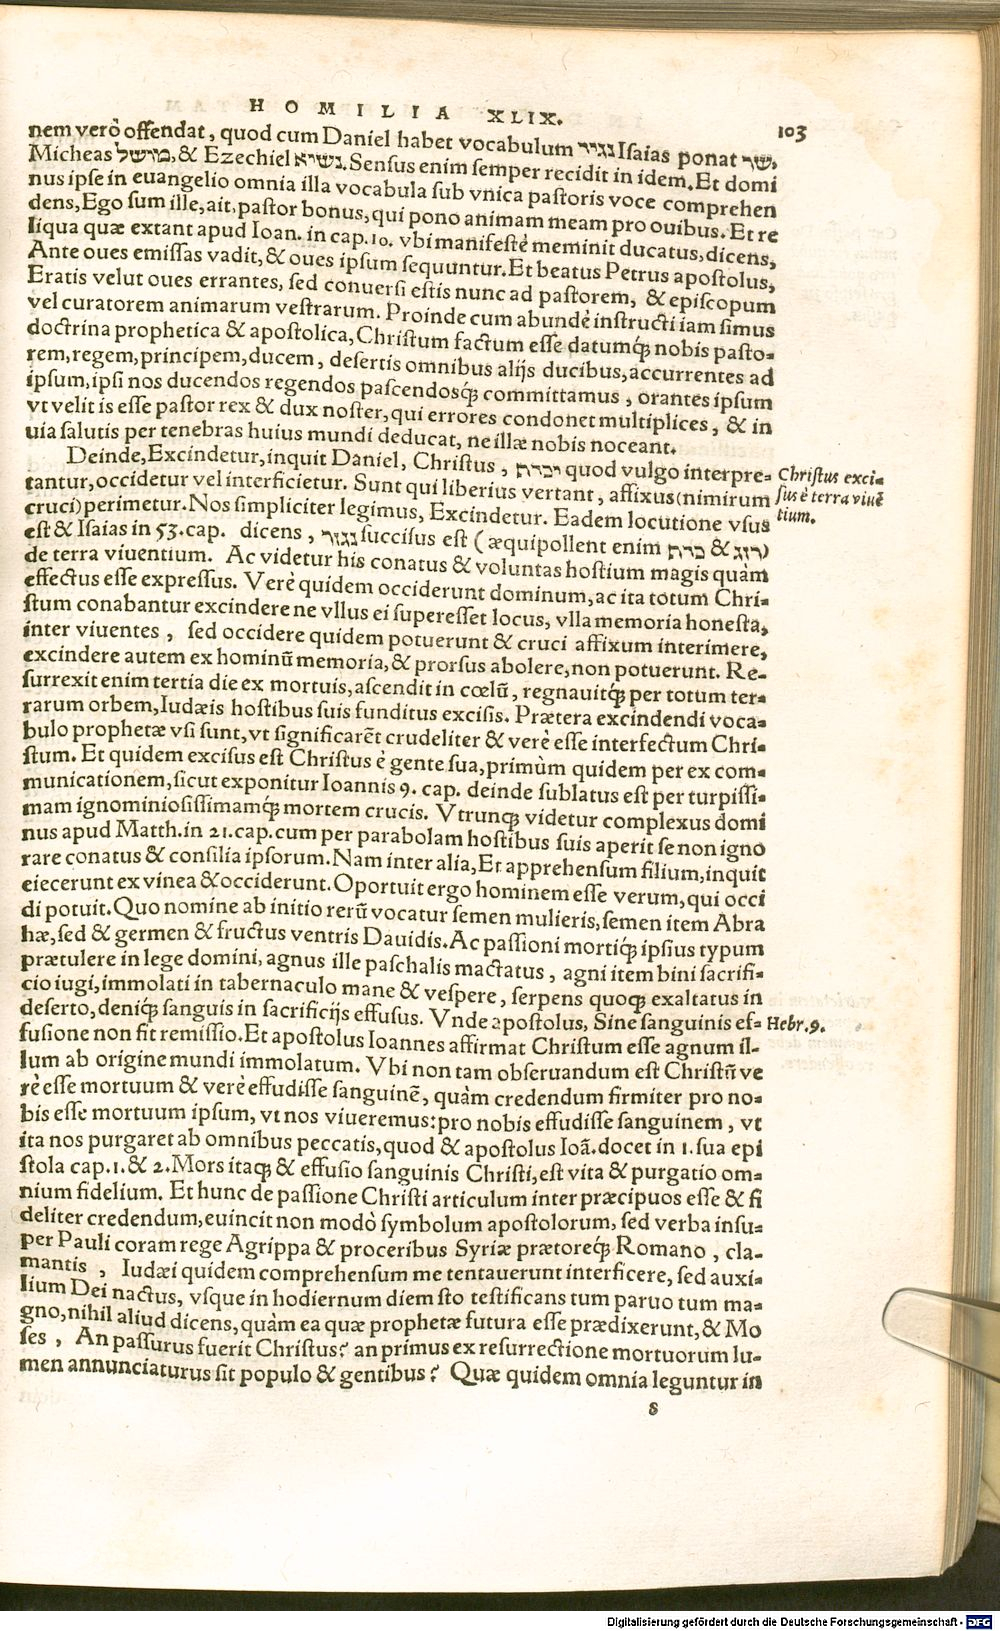 HOMILIA XLIX. 103
nem verò offendat, quod cum Daniel habet vocabulum נגיד Isaias ponat שר,
Micheas מושל, & Ezechiel נשיא. Sensus enim semper recidit in idem. Et domi
nus ipse in euangelio omnia illa vocabula sub vnica pastoris voce comprehen
dens, Ego sum ille, ait, pastor bonus, qui pono animam meam pro ouibus. Et re
liqua quæ extant apud Ioan. in cap. 10. vbi manifestè meminit ducatus, dicens,
Ante oues emissas vadit, & oues ipsum sequuntur. Et beatus Petrus apostolus,
Eratis velut oues errantes, sed conuersi estis nunc ad pastorem, & episcopum
vel curatorem animarum vestrarum. Proinde cum abundè instructi iam simus
doctrina prophetica & apostolica, Christum factum esse datumq́; nobis pasto-
rem, regem, principem, ducem, desertis omnibus alijs ducibus, accurrentes ad
ipsum, ipsi nos ducendos regendos pascendosq́; committamus, orantes ipsum
vt velit is esse pastor rex & dux noster, qui errores condonet multiplices, & in
uia salutis per tenebras huius mundi deducat, ne illæ nobis noceant.
Deinde, Excindetur, inquit Daniel, Christus, יכרת quod vulgo interpre-
tantur, occidetur vel interficietur. Sunt qui liberius vertant, affixus (nimirum
cruci) perimetur. Nos simpliciter legimus, Excindetur. Eadem locutione vsus
est & Isaias in 53. cap. dicens, נגזר succisus est (æquipollent enim כרת & גזר)
de terra viuentium. Ac videtur his conatus & voluntas hostium magis quàm
effectus esse expressus. Verè quidem occiderunt dominum, ac ita totum Chri-
stum conabantur excindere ne vllus ei superesset locus, vlla memoria honesta,
inter viuentes, sed occidere quidem potuerunt & cruci affixum interimere,
excindere autem ex hominũ memoria, & prorsus abolere, non potuerunt. Re-
surrexit enim tertia die ex mortuis, ascendit in cœlũ, regnauitq́; per totum ter-
rarum orbem, Iudæis hostibus suis funditus excisis. Prætera excindendi voca-
bulo prophetæ vsi sunt, vt significarẽt crudeliter & verè esse interfectum Chri-
stum. Et quidem excisus est Christus è gente sua, primùm quidem per ex com-
municationem, sicut exponitur Ioannis 9. cap. deinde sublatus est per turpissi-
mam ignominiosissimamq́; mortem crucis. Vtrunq; videtur complexus domi
nus apud Matth. in 21. cap. cum per parabolam hostibus suis aperit se non igno
rare conatus & consilia ipsorum. Nam inter alia, Et apprehensum filium, inquit
eiecerunt ex vinea & occiderunt. Oportuit ergo hominem esse verum, qui occi
di potuit. Quo nomine ab initio rerũ vocatur semen mulieris, semen item Abra
hæ, sed & germen & fructus ventris Dauidis. Ac passioni mortiq́; ipsius typum
prætulere in lege domini, agnus ille paschalis mactatus, agni item bini sacrifi-
cio iugi, immolati in tabernaculo mane & vespere, serpens quoq; exaltatus in
deserto, deniq́; sanguis in sacrificijs effusus. Vnde apostolus, Sine sanguinis ef-
fusione non fit remissio. Et apostolus Ioannes affirmat Christum esse agnum il-
lum ab origine mundi immolatum. Vbi non tam obseruandum est Christũ ve
rè esse mortuum & verè effudisse sanguinẽ, quàm credendum firmiter pro no-
bis esse mortuum ipsum, vt nos viueremus: pro nobis effudisse sanguinem, vt
ita nos purgaret ab omnibus peccatis, quod & apostolus Ioã. docet in 1. sua epi
stola cap. 1. & 2. Mors itaq; & effusio sanguinis Christi, est vita & purgatio om-
nium fidelium. Et hunc de passione Christi articulum inter præcipuos esse & fi
deliter credendum, euincit non modò symbolum apostolorum, sed verba insu-
per Pauli coram rege Agrippa & proceribus Syriæ prætoreq́; Romano, cla-
mantis, Iudæi quidem comprehensum me tentauerunt interficere, sed auxi-
lium Dei nactus, vsque in hodiernum diem sto testificans tum paruo tum ma-
gno, nihil aliud dicens, quàm ea quæ prophetæ futura esse prædixerunt, & Mo
ses, An passurus fuerit Christus? an primus ex resurrectione mortuorum lu-
men annunciaturus sit populo & gentibus? Quæ quidem omnia leguntur in
s
Christus exci-
sus è terra viuẽ
tium.
Hebr. 9.
Digitalisierung gefördert durch die Deutsche Forschungsgemeinschaft - DFG